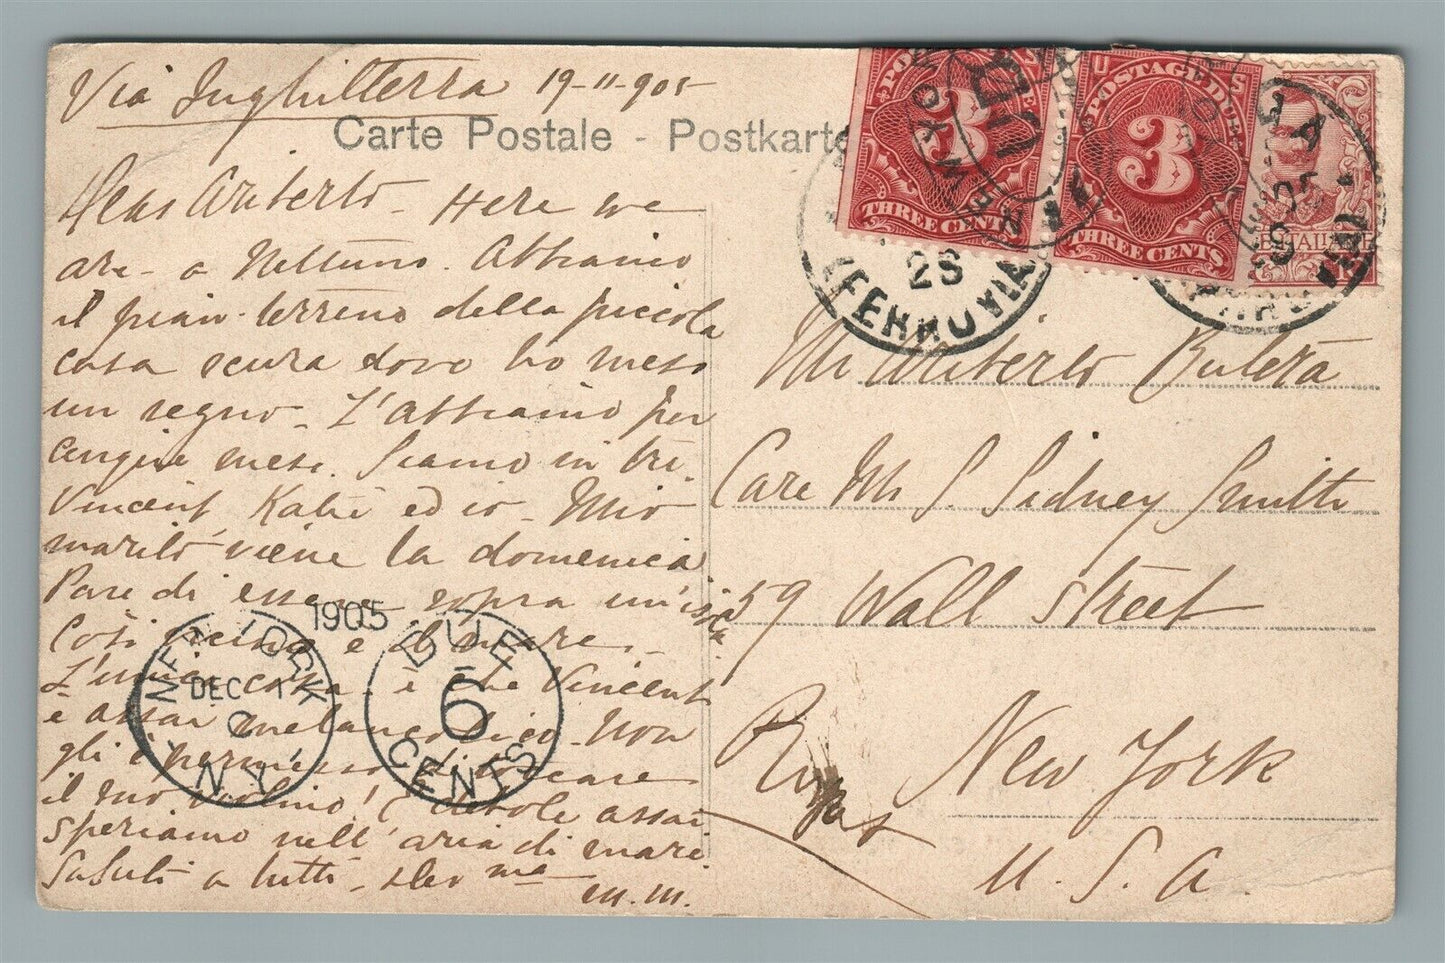 Via Inghilterra 19-11-905
Carte Postale - Postkarte
Dear Ariberto - Here we
are - a Nettuno. Abbiamo
il pian-terreno della piccola
casa scura dove ho messo
un segno - L'abbiamo per
cinque mesi. Siamo in tri.
Vincent, Katie ed io - Mio
marito viene la domenica
Pare di essere sopra un'isola
Così vicino e il mare -
L'unica cosa è che Vincent
è assai melanconico - Non
gli è permesso di toccare
il suo violino! È debole assai
speriamo nell'aria di mare
Saluti a tutti - 
m.m.
POSTAGE DUE
3
THREE CENTS
U S
POSTAGE DUE
3
THREE CENTS
10
POSTE ITALIANE
28
(FERROVIA)
Mr Ariberto
Care Mr S. Sidney Smith
59 Wall Street
New York
U. S. A.
1905
DEC 1
N.Y.
DUE
6
CENTS